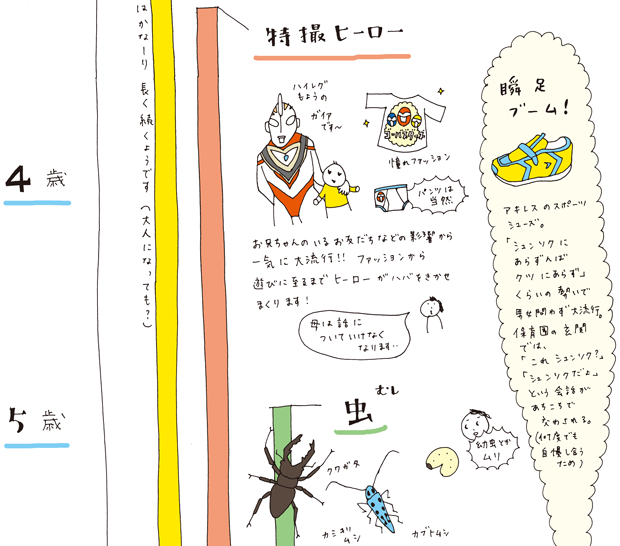 はかなーり 長く続くようです（大人になっても？）
4歳
5歳
特撮ヒーロー
ハイレグ
もようの
ガイア
です〜
憧れファッション
パンツは
当然
お兄ちゃんのいるお友だちなどの影響から
一気に大流行!! ファッションから
遊びに至るまでヒーローがハバをきかせ
まくります！
母は話に
ついていけなく
なります‥
虫
むし
クワガタ
カミキリ
ムシ
カブトムシ
幼虫とか
ムリ
瞬足
ブーム！
アキレスのスポーツ
シューズ。
「シュンソクに
あらずんば
クツにあらず」
くらいの勢いで
男女問わず大流行。
保育園の玄関
では、
「これシュンソク？」
「シュンソクだよ」
という会話が
あちこちで
交わされる。
（何度でも
自慢し合う
ため）